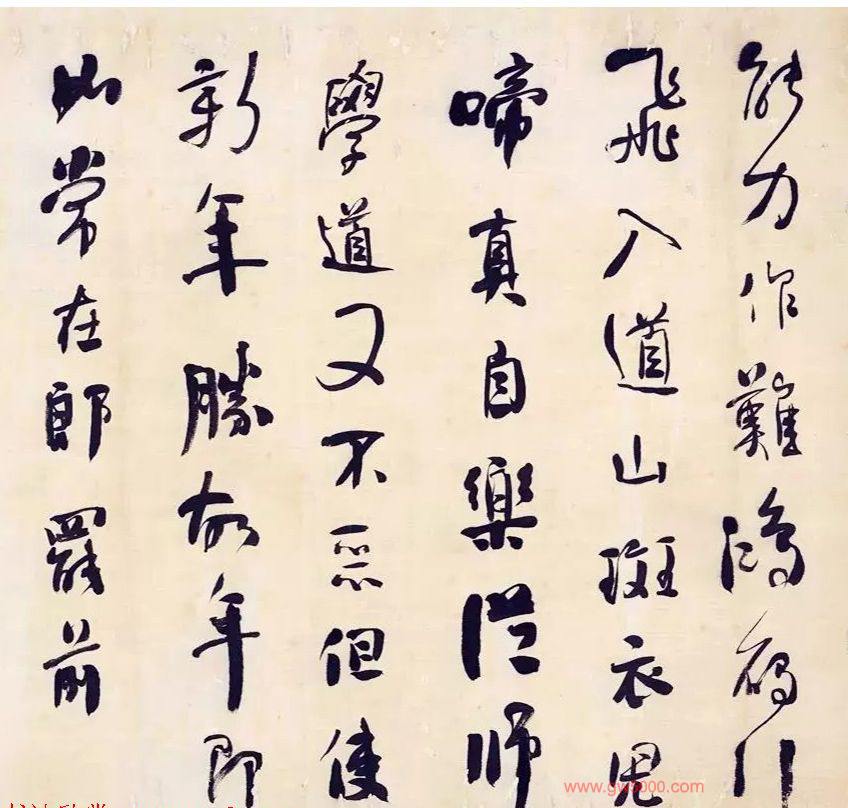 能力作難鴻鴈行
飛入道山斑衣兒
啼真自樂從師
學道又不惡但使
新年勝故年即
如常在郎罷前
www.gw5000.com